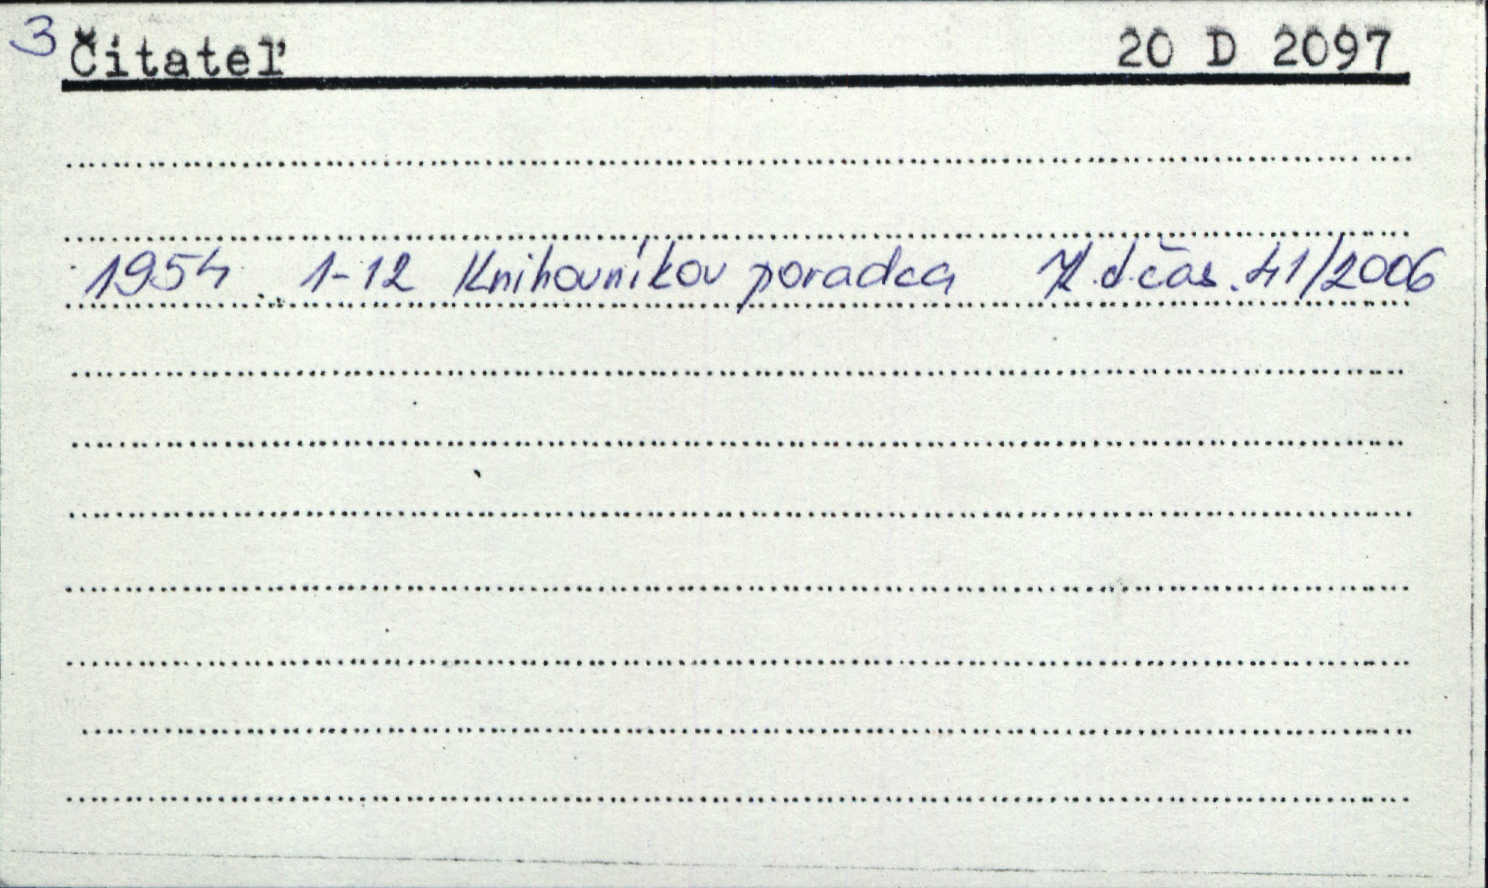 3 Čitateľ 20 D 2097
1954 1-12 Knihovníkov poradca Z.d.čas. 41/2006